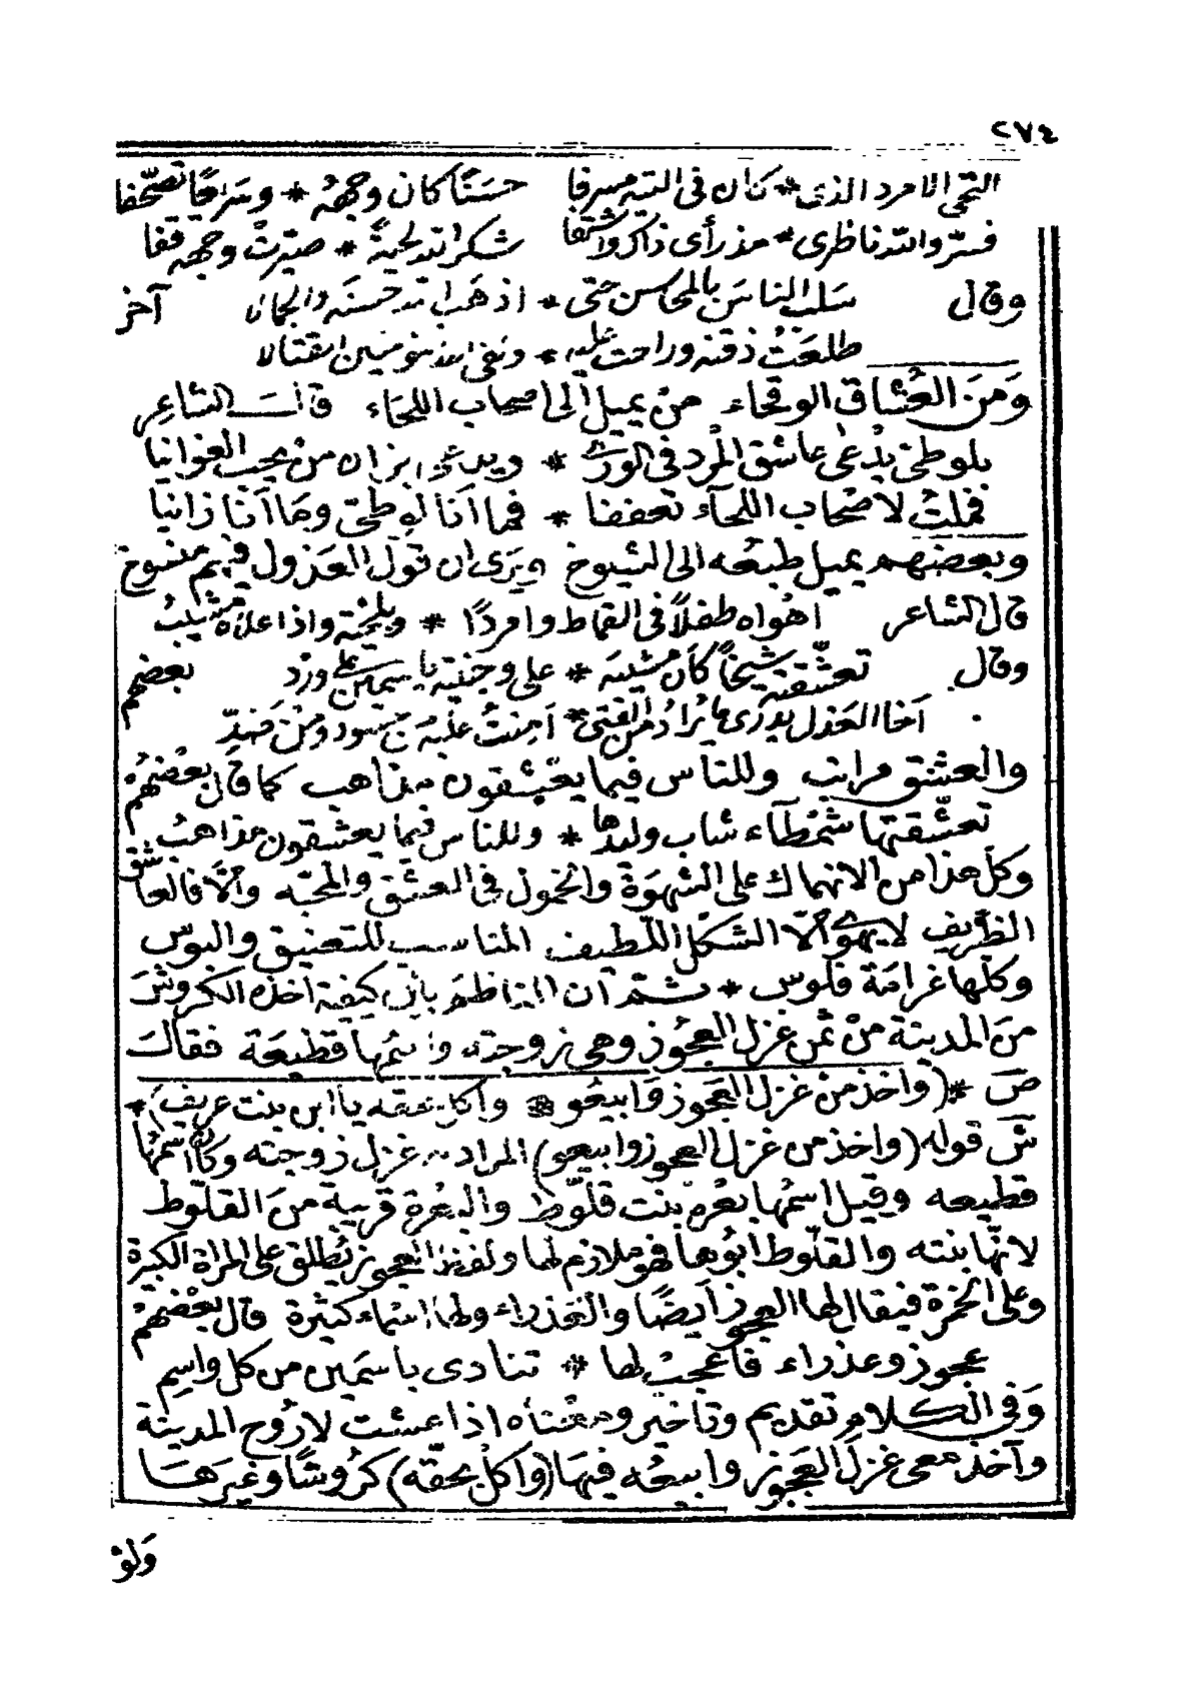 ٢٧٤
التحى الامرد الذى * كان فى التيه مسرفا حسنًا كان وجهه * وسريعًا تصحّفا
فسرّ والله ناظرى * مذ رأى ذاك واشتفا شكر الله لحيةً * صيّرت وجهه قفا
وقال سلب الناسَ بالمحاسن حتى * اذهب الله حسنه والجمالا آخر
طلعَتْ ذقنه وراحت عليه * وكفى الله المؤمنين القتالا
وَمنَ العُشاق الوقحاء منْ يميل الى اصحاب اللحَاء قالــَ الشاعِر
بلوطىّ يدْعى عاشق المُرد فى الورىٰ * ويدعى بزان من يحب الغوانيا
فملتُ لاصْحاب اللحآء تعففا * فما انا لوطىّ وما أنا زانيا
وبعضهم يميل طبعُه الى الشيوخ ويَرى ان قول العَذول فيهم منسوخ
قال الشاعر اهْواه طفلاً فى القماط وامردًا * وبلحيته واذا علاه مَشيْبُ
وقال تعشّقته شيخًا كأن مشيبَه * على وجنتيه ياسمين على ورْد بعضهم
آخا العَذل يدرى ما يُرادُ من الفتى * آمنتُ عليه من حسود ومن ضدِّ
والعشق مراتب وللناس فيما يعْشقون مذاهب كما قال بعْضهُم
تعشّقتها شمْطآء شاب وليدها * وللناس فيما يعشقون مذاهبُ
وكل هذا من الانهماك على الشهوَة والخمول فى العشق والمحبّه وإلاّ فالعاشق
الظّريف لا يهوىٰ إلاّ الشكل اللّطيف المناسب للتعنيق والبوس
وكلها غرامَة فلوس * ثم آن الناظم بيّن كيفية اخذه الكروشَ
منَ المدينة منْ ثمن غزل العجُوز وهى زوجته واسمُها قطيعَة فقالَ
صَ * (واخذ منْ غزل العَجوز وَابيعُو * واكل بحقه يا ابن بنت عريف) *
شَ قوله (واخذ من غزل العجوز وابيعو) المراد من غزل زوجته وكان اسمُها
قطيعه وقيل اسمُها بعْره بنت قلوّط والبعْرة قريبة منَ القلّوط
لانّها بنته والقلّوط ابُوها فهو ملازم لها ولفظ العجوز يُطلق على المراة الكبيرة
وعلى الخمرة فيقال لها العجوز أيضًا والعَذراء ولها اسْماء كثيرة قال بعْضهمْ
عجوز وعذراء فاعجبْ لها * تنادى باسمَين من كل واسِم
وَفى الكلامِ تقديم وتاخير ومعْناه اذا عشت لارُوح المدينة
وآخذ معى غزلَ العَجوز وابيعُه فيهَا (واكلْ بحقّه) كرُوشًا وغيرَهَا
وَلوْ